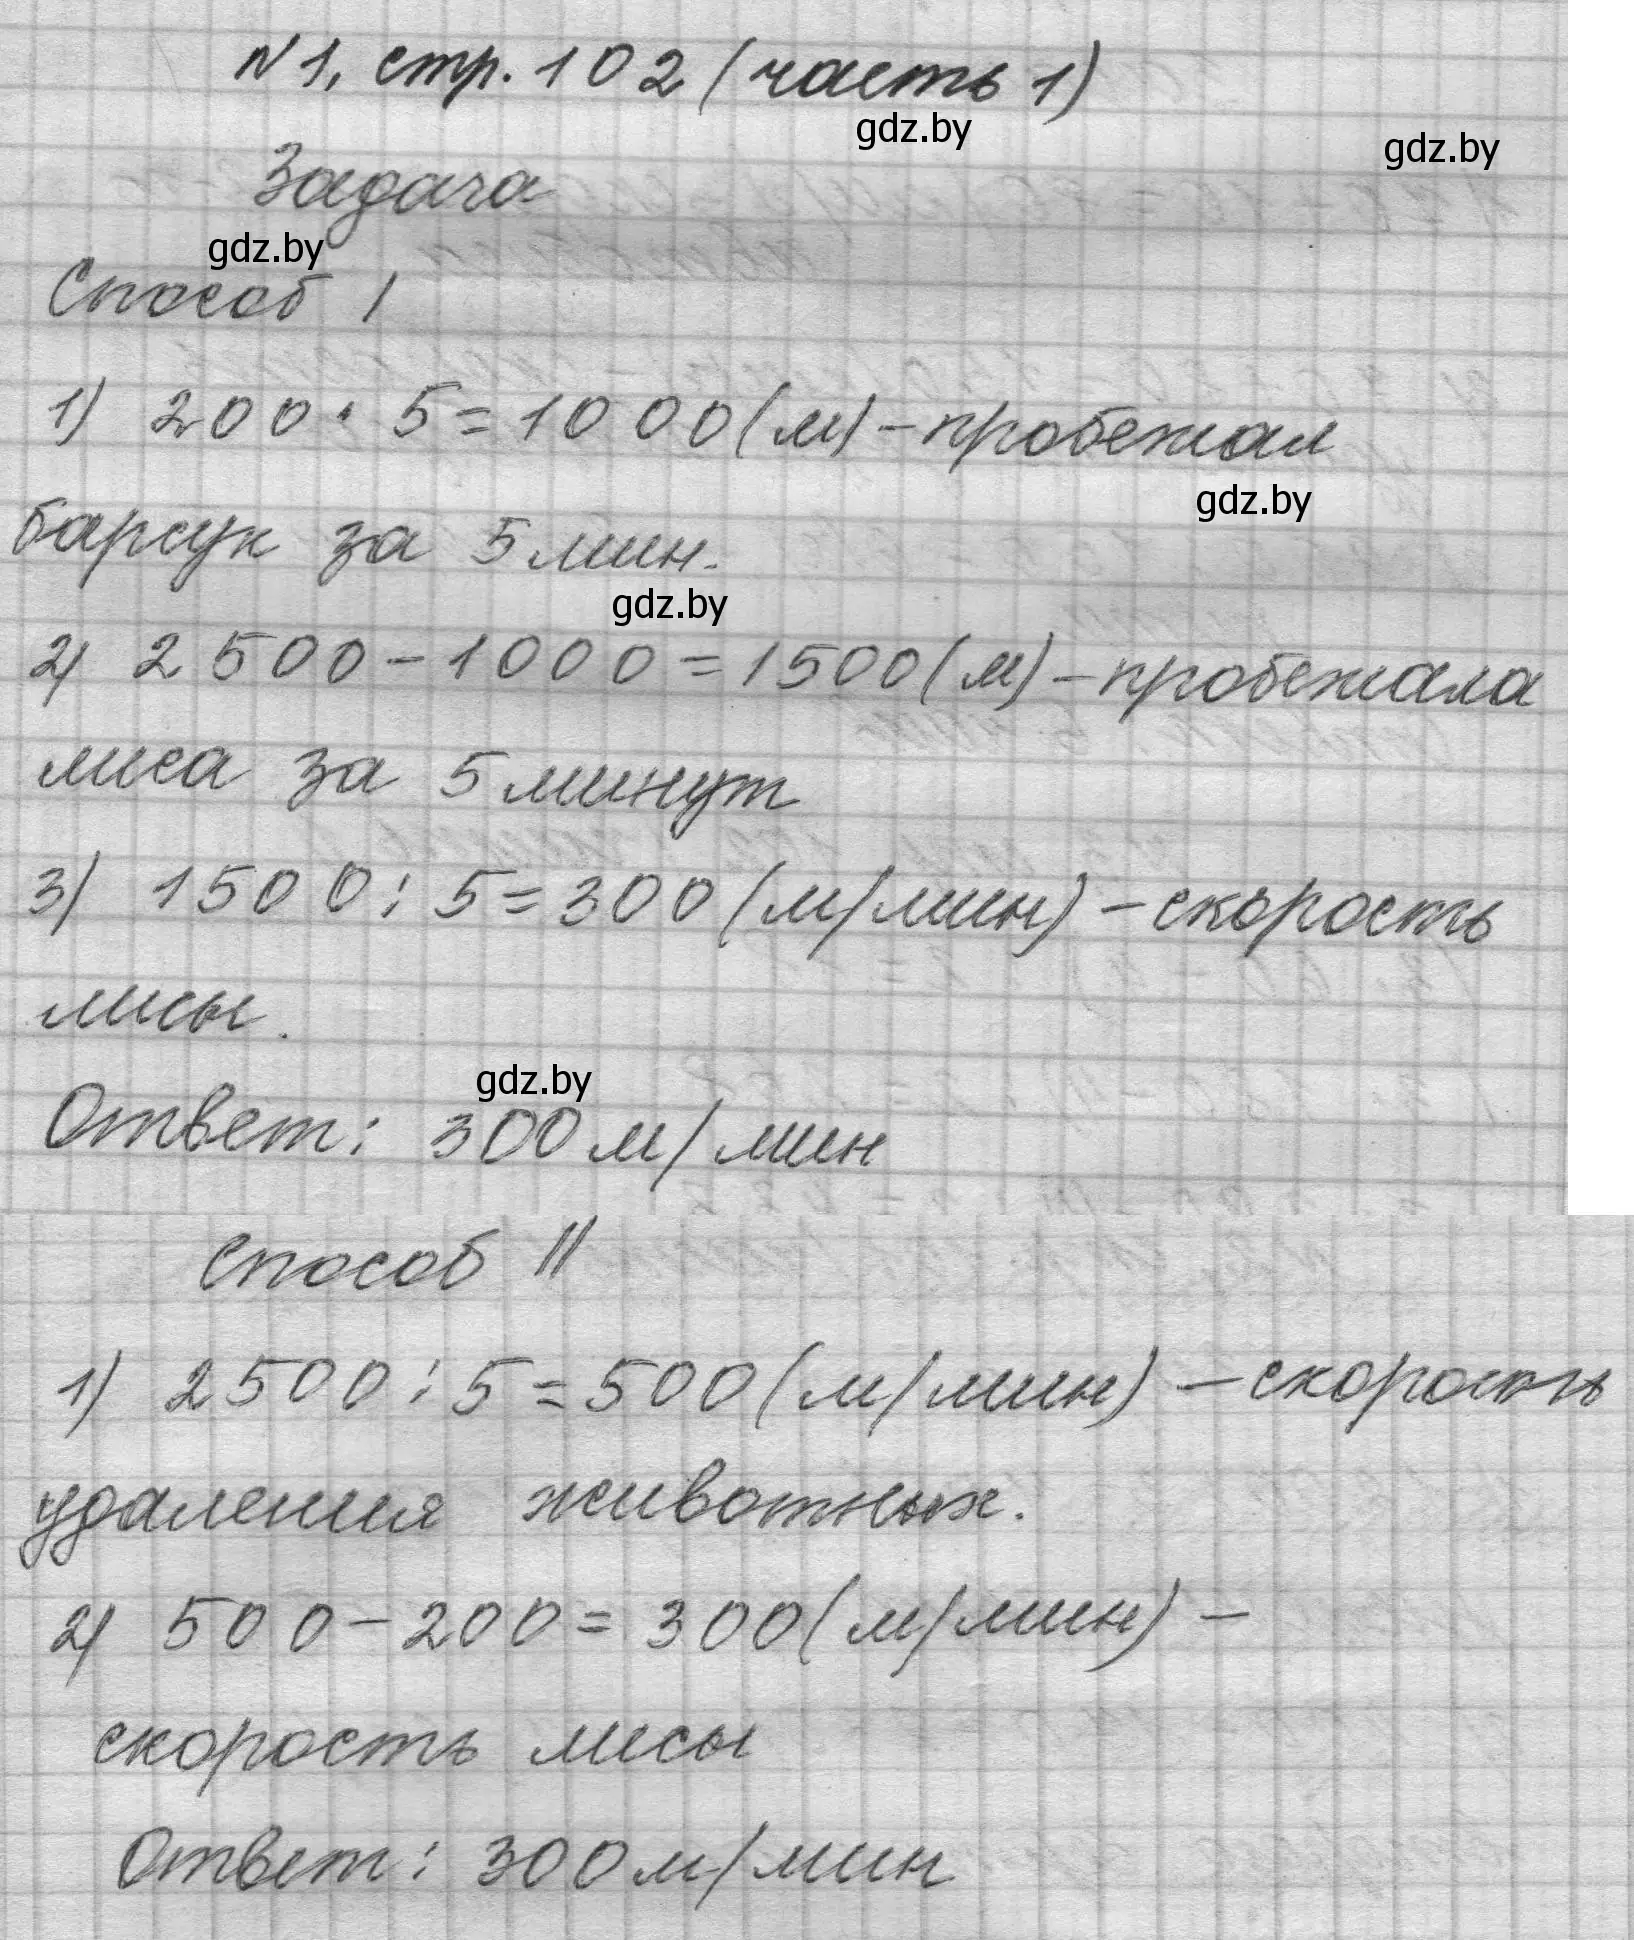 №1, стр. 102 (часть 1)
gdz.by
gdz.by
Задача
gdz.by
Способ I
1) 200 · 5 = 1000 (м) – пробежал
gdz.by
барсук за 5 мин.
gdz.by
2) 2500 – 1000 = 1500 (м) – пробежала
лиса за 5 минут
3) 1500 : 5 = 300 (м/мин) – скорость
лисы.
gdz.by
Ответ: 300 м/мин
Способ II
1) 2500 : 5 = 500 (м/мин) – скорость
удаления животных.
2) 500 – 200 = 300 (м/мин) –
скорость лисы
Ответ: 300 м/мин